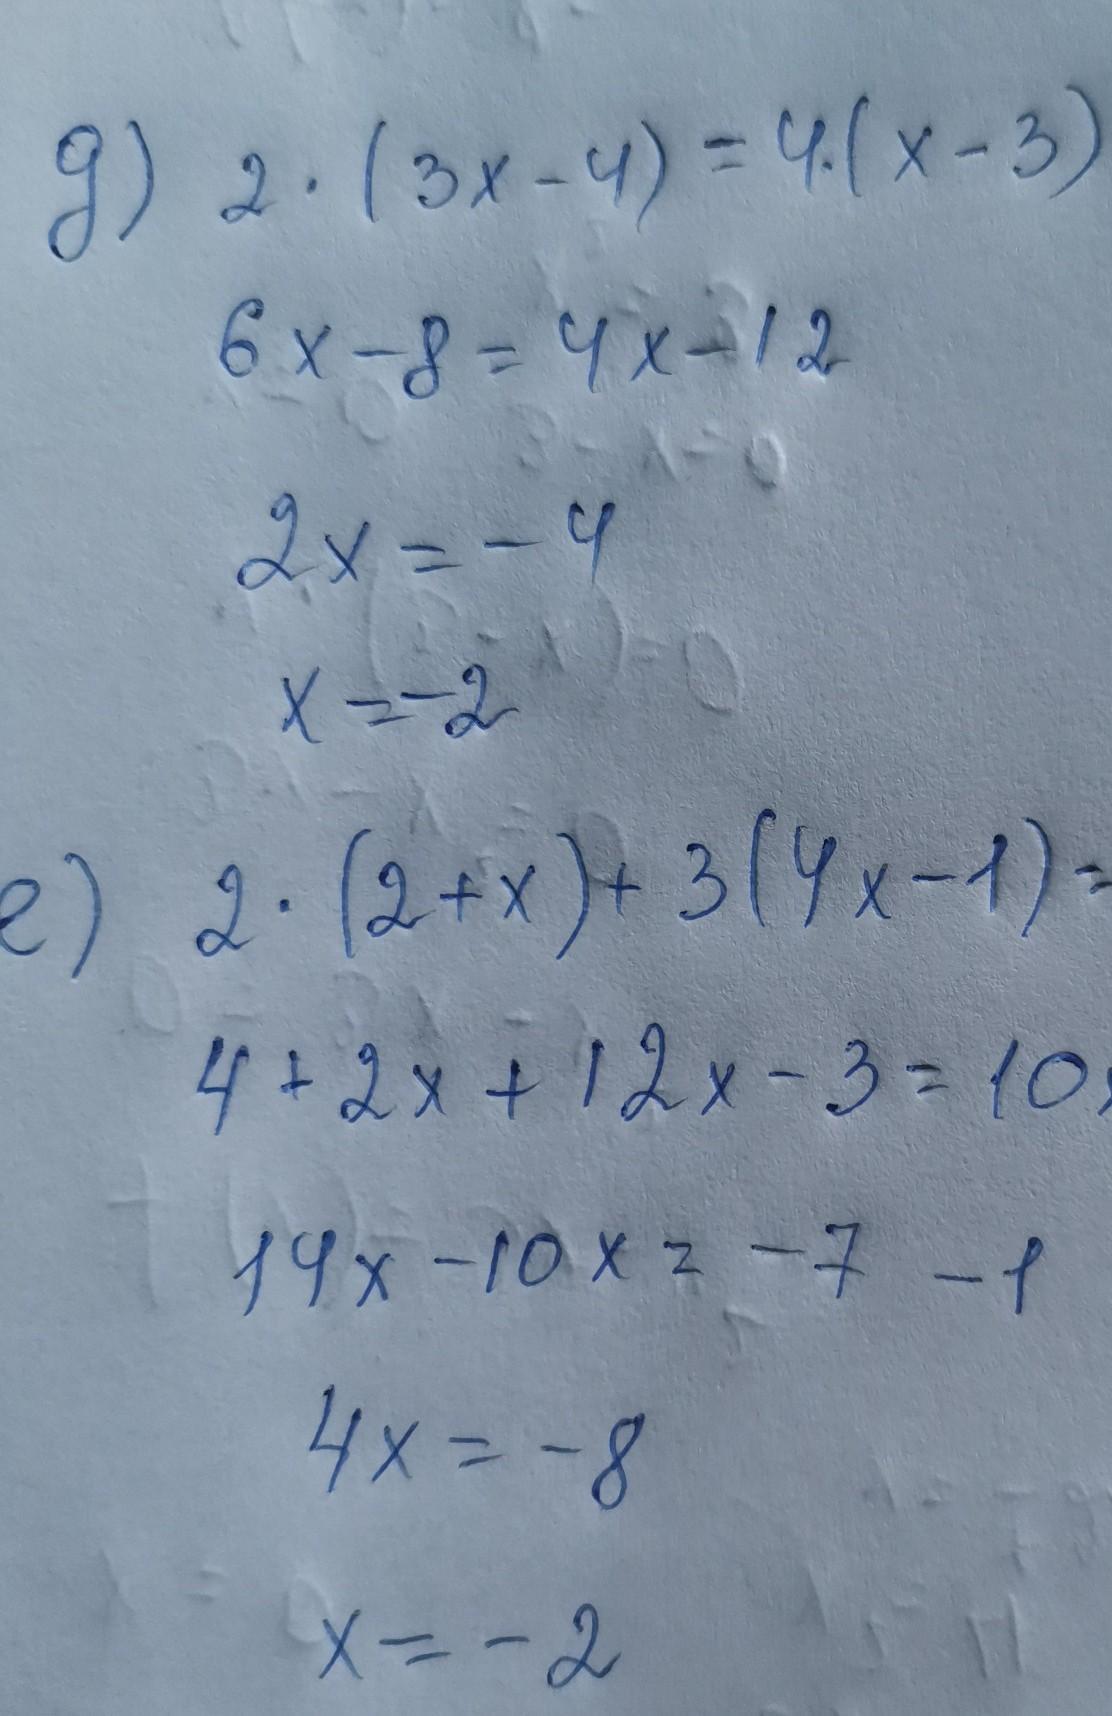 g) 2 · (3x - 4) = 4·(x - 3)
6x - 8 = 4x - 12
2x = - 4
x = -2
e) 2 · (2 + x) + 3(4x - 1) =
4 + 2x + 12x - 3 = 10x
14x - 10x = - 7 - 1
4x = - 8
x = - 2